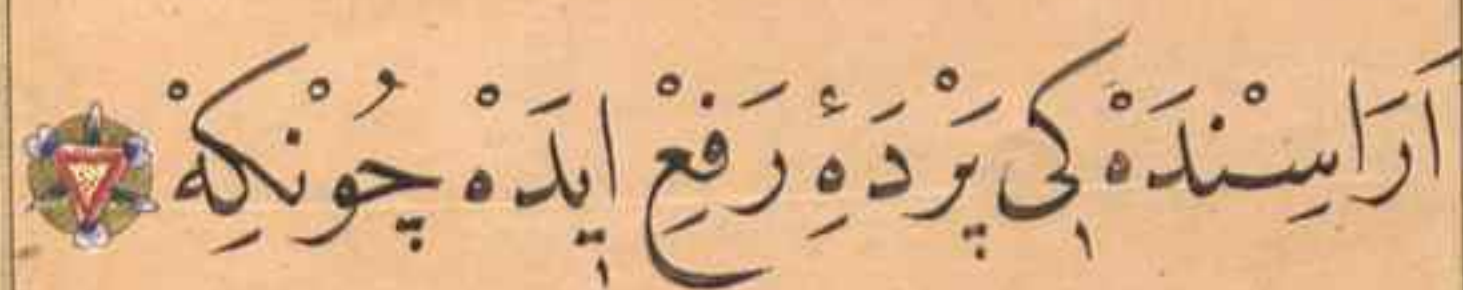 اَرَاسِنْدَهْ كٖى پَرْدَهِٔ رَفِعْ اٖيدَهْ چُونْكِهْ